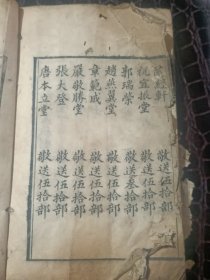 蘭經軒 敬送伍拾部
祝宜振堂 敬送伍拾部
郭瑞榮 敬送叁拾部
趙燕翼堂 敬送伍拾部
章範成 敬送伍拾部
嚴敬勝堂 敬送伍拾部
張大登 敬送伍拾部
唐本立堂 敬送伍拾部